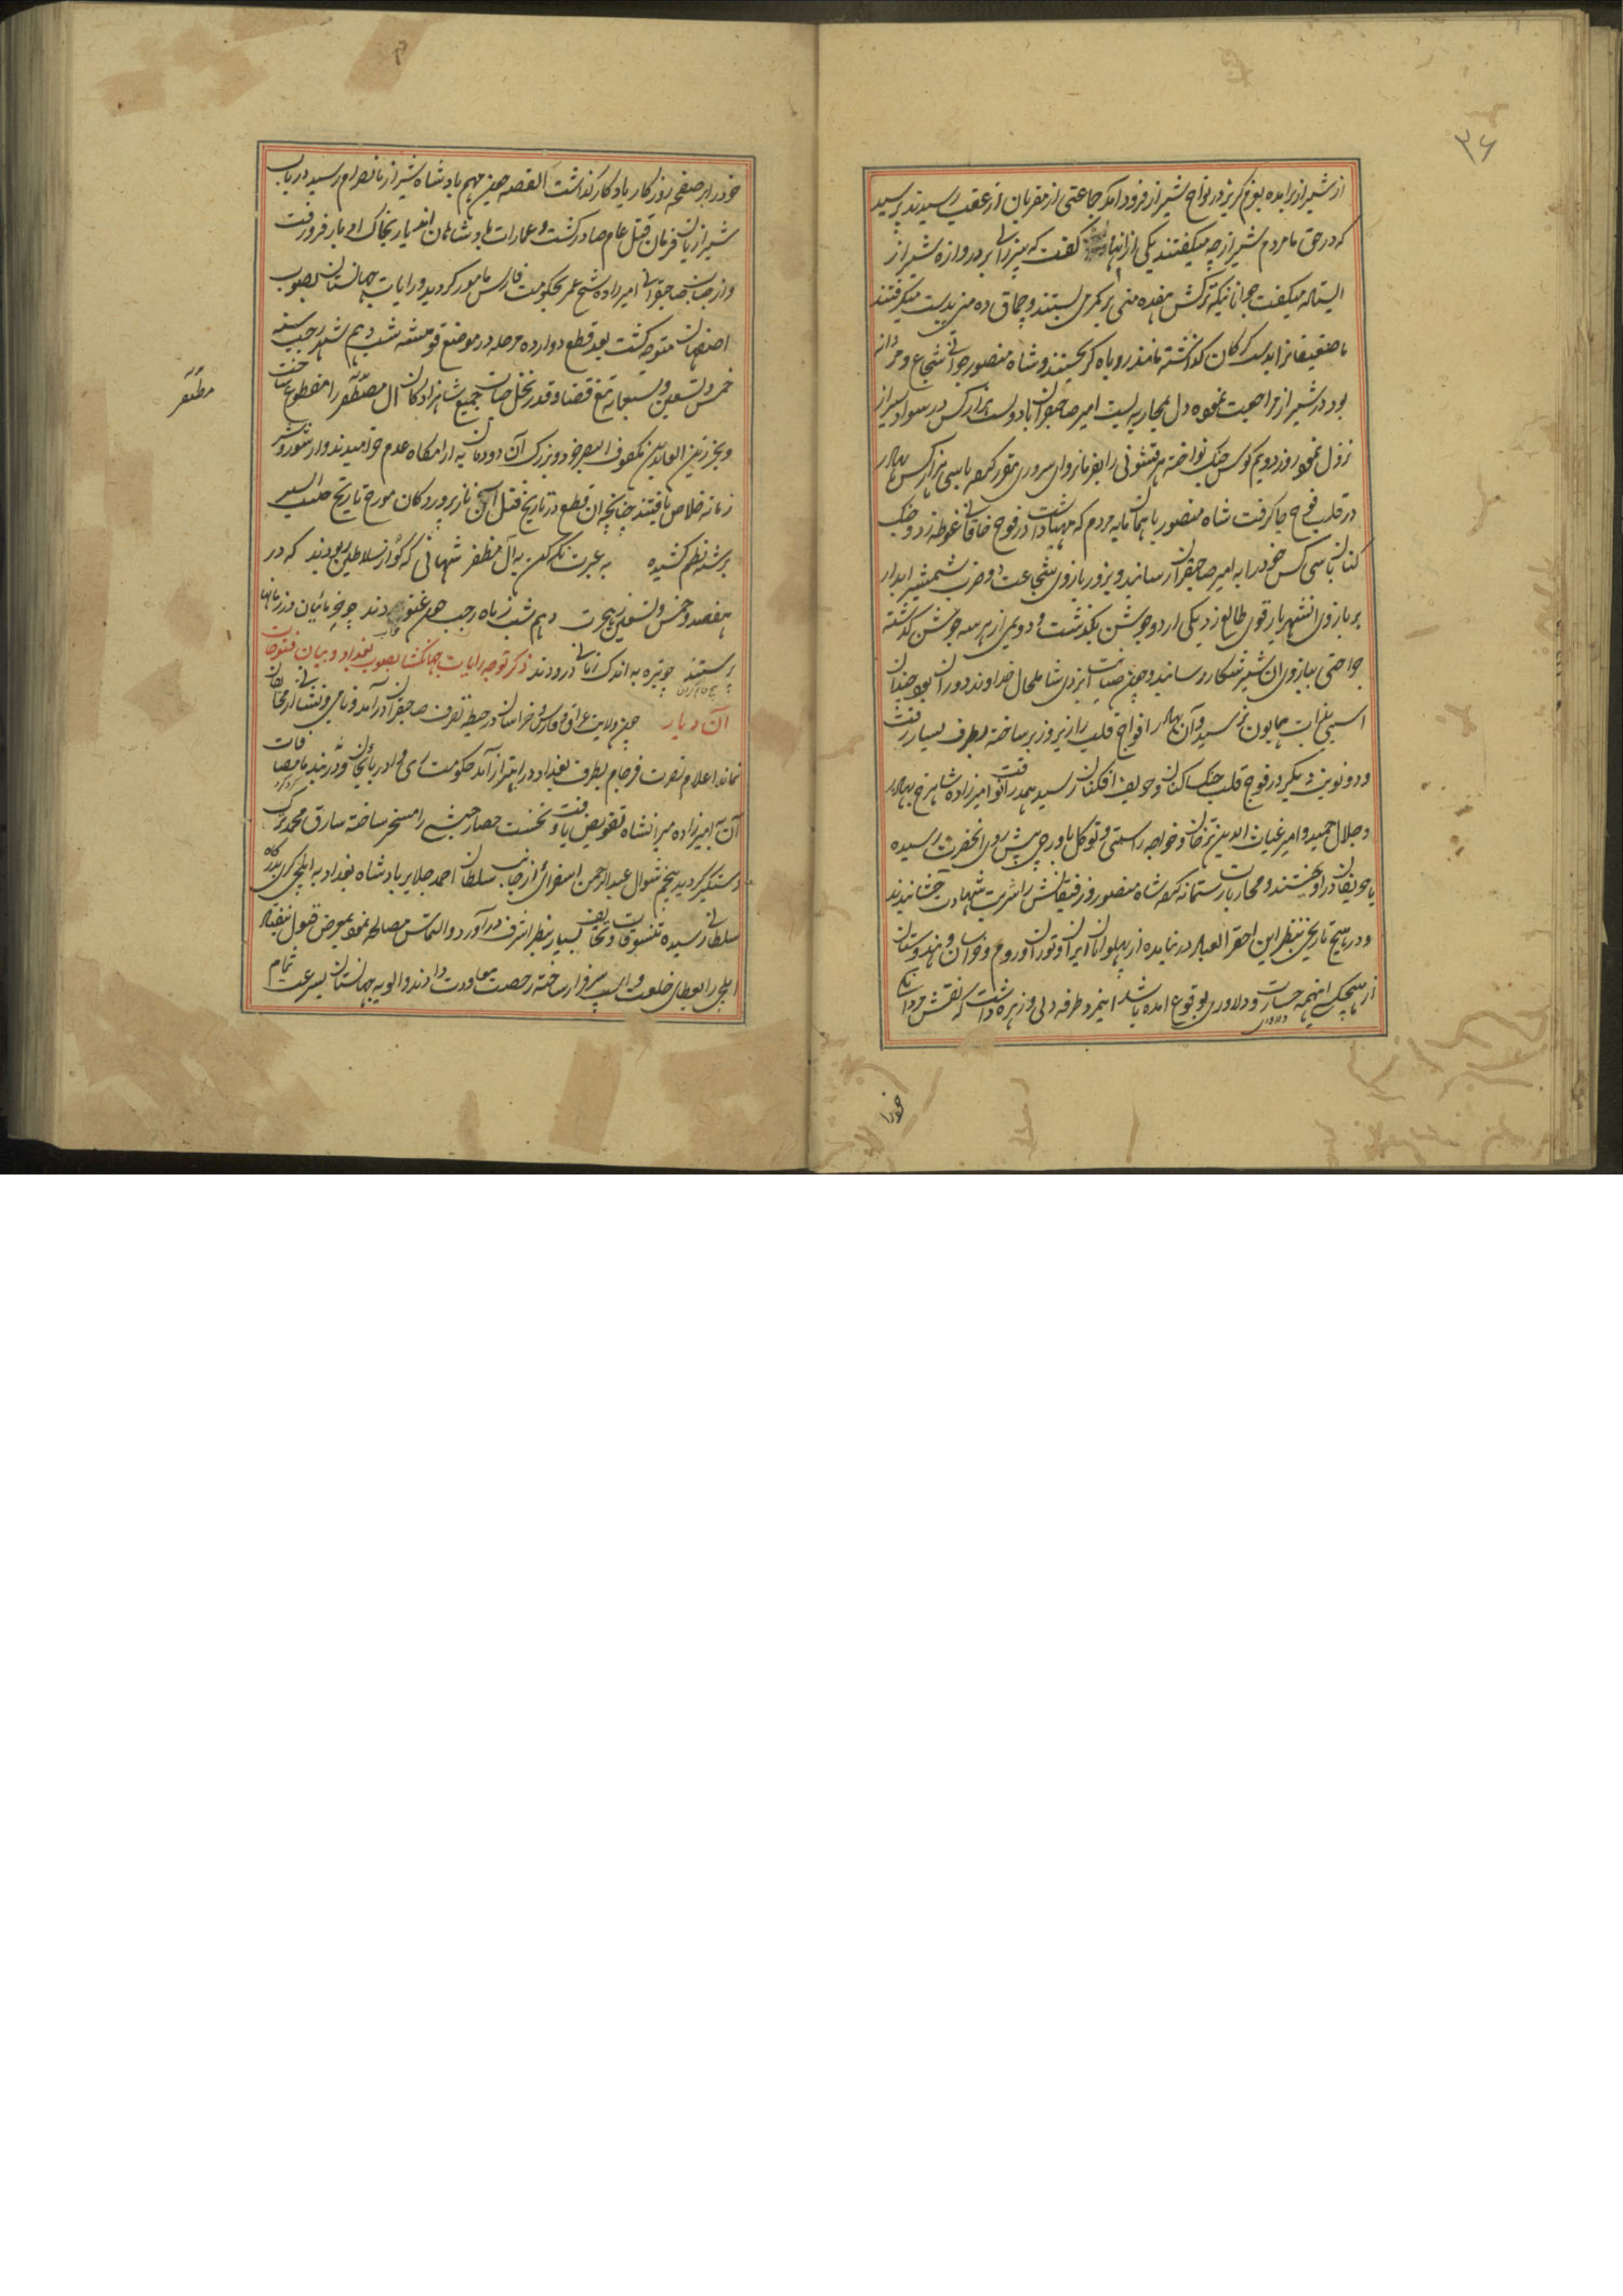 ۳۶
از شیراز برآمده بعزم گریز در نواح شیراز فرود آمد جماعتی از مقربان از عقب رسیدند پرسید
که در حق ما مردم شیراز چه میگفتند یکی از آنها گفت که پیرزنی بر دروازه شیراز
ایستاده میگفت جوانانیکه ترکش هفده منی بر کمر می بستند و چماق ده منی بدست میگرفتند
ما ضعیفانرا بدست گرگان گذاشته مانند روباه گریختند و شاه منصور جوانی شجاع و مردانه
بود در شیراز مراجعت نموده دل بمحاربه بست امیر صاحبقران با دویست هزار کس در سواد شیراز
نزول نمود روز دویم کوس جنگ نواخته هر قشونی را بفرمانروای سروری مقرر کرده با سی هزار کس بهادر
در قلب فوج جا گرفت شاه منصور با همان مایه مردم که مهیا داشت در فوج خاقانی غوطه زد و جنگ
کنان با سی کس خود را به امیر صاحبقران رسانید و بزور بازوی شجاعت دو ضرب شمشیر ابدار
بر بازوی آن شهریار قوی طالع زد یکی از دو جوشن بگذشت و دویمی از هر سه جوشن گذشته
جراحتی ببازوی آن شیر شکار رسانید و چون عنایت ایزدی شامل حال خداوند دوران بود چندان
اسیبی بذات همایون نرسید و آن بهادر افواج قلب را زیر و زبر ساخته بطرف یسار رفت
و دو نوبت دیگر در فوج قلب جنگ کنان و حریف افکنان رسید همدران وقت امیرزاده شاهرخ بهادر
و جلال حمید و امیر غیاث الدین ترخان و خواجه راستی و توکل باورچی پیش روی آنحضرت رسیده
با حریفان در آویختند و محاربات رستمانه کرده شاه منصور و رفیقانش را شربت شهادت چشانیدند
و در هیچ تاریخی بنظر این احقر العباد در نیامده از پهلوانان ایران و توران و روم و خراسان و هندوستان
از هیچکس اینهمه جسارت و دلاوری بوقوع آمده باشد اینمرد طرفه دلی و زهره داشت که نقش مردانگی
خود را
خود را بر صفحه روزگار یادگار گذاشت القصه چون مهم بادشاه شیراز بانصرام رسید در باب
شیرازیان فرمان قتل عام صادر گشت و عمارات بادشاهان آندیار بخاک ادبار فرو رفت
و از جناب صاحبقرانی امیرزاده شیخ عمر بحکومت فارس مامور گردید و رایات جهانستان بصوب
اصفهان متوجه گشت بعد قطع دوازده مرحله در موضع قومشه شب دهم شهر رجب سنه
خمس و تسعین و سبعمایه تیغ قضا و قدر نخل حیات جمیع شاهزادگان آل مظفر را منقطع ساخت
مظفر
و بجز زین العابدین مکفوف البصر خرد و بزرگ آن دودمان به آرامگاه عدم خرامیدند و از شور و شر
زمانه خلاص یافتند چنانچه این قطع در تاریخ قتل این ناز پروردگان مورخ تاریخ حبیب السیر
برشته نظم کشیده به عبرت نگه کن به آل مظفر شهانی که گو از سلاطین ربودند که در
هفصد و خمس و تسعین ز هجرت دهم شب ز ماه رجب چون غنودند چو خرمابنان در زمانها
برستند چو تره به اندک زمانی درودند ذکر توجه رایات جهانکشا بصوب بغداد و بیان فتوحات
آن دیار چون ولایت عراق و فارس و خراسان در حیطه تصرف صاحبقران در آمد و نامی و نشانی از مخالفان
نماند اعلام نصرت فرجام بطرف بغداد در اهتزاز آمد حکومت ری و ادربائجان و دربند با مضافات
آن به امیرزاده میرانشاه تفویض یافت و نخست حصار حبشی را مسخر ساخته سارق محمد ترک
دستگیر گردید پنجم شوال عبدالرحمن اسفرائی از جانب سلطان احمد جلایر بادشاه بغداد به ایلچی گری بدرگاه
سلطانی رسیده تنسوقات و تحایف بسیار بنظر اشرف در آورد و التماس مصالحه نمود بمعرض قبول نیفتاد
ایلچی را بعطای خلعت و اسپ سرفراز ساخته رخصت معاودت دادند و الویه جهانستان بسرعت تمام